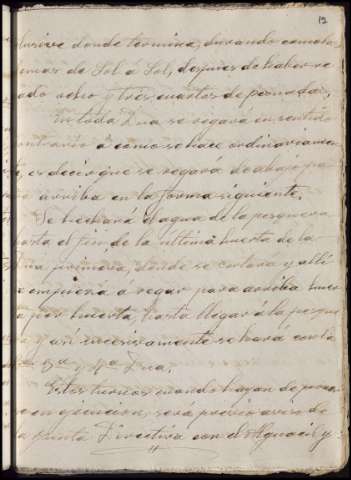 12
clusive donde termina, durando cam
tenias de Sol á Sol, despues de haber re
ado ocho y tres cuartos de peonadas.
En toda Dua se regará en sentido
contrario á como se hace ordinariamen
te, es decir que se regará de abajo pa
arriba en la forma siguiente.
Se hechará el agua de la pesquera
hasta el fin de la última huerta de la
Dua primera, donde se cortará y allí
se empieza á regar para arriba huer
a por huerta, hasta llegar á la pesque
y así sucesivamente se hará con la
3ª y 4ª Dua.
Estos turnos cuando hayan de poner
se en ejecucion, será prévio aviso de
la Junta Directiva con el Alguacil y